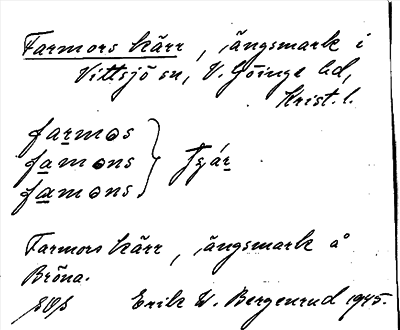 Farmors kärr, ängsmark i
Vittsjö sn, V. Göinge hd,
Krist. l.
farmɷs
famɷns } 
famɷns
Farmors kärr, ängsmark å
Bröna.
Erik W. Bergenrud 1945.